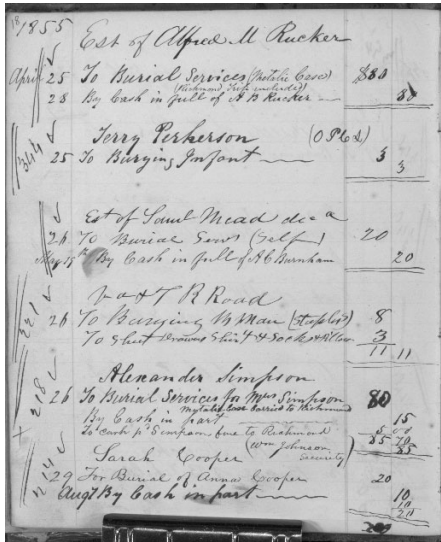 1855
Est of Alfred M Rucker
April 25 To Burial Services (Metalic Case) $80
(Richmond Trip included)
28 By Cash in full of A B Rucker 80
344
Terry Perkerson (O P 62)
25 To Burying Infant 3
3
Est of Saml Mead dec
26 To Burial Serv (Self) 20
May 15 By Cash in full of A C Burnham 20
221
Va & T R Road
26 To Burying W Man (Staples) 8
To Shirt Drawers & Socks 3
11 11
218
Alexander Simpson
26 To Burial Services for Mrs Simpson 80
Mytalic case carried to Richmond
By Cash in part 15
To cash pd Simpsons fare to Richmond 5 00
85 70
85
(Wm Johnson Security)
Sarah Cooper
29 For Burial of Anna Cooper 20
Augt By Cash in part 10
10
20